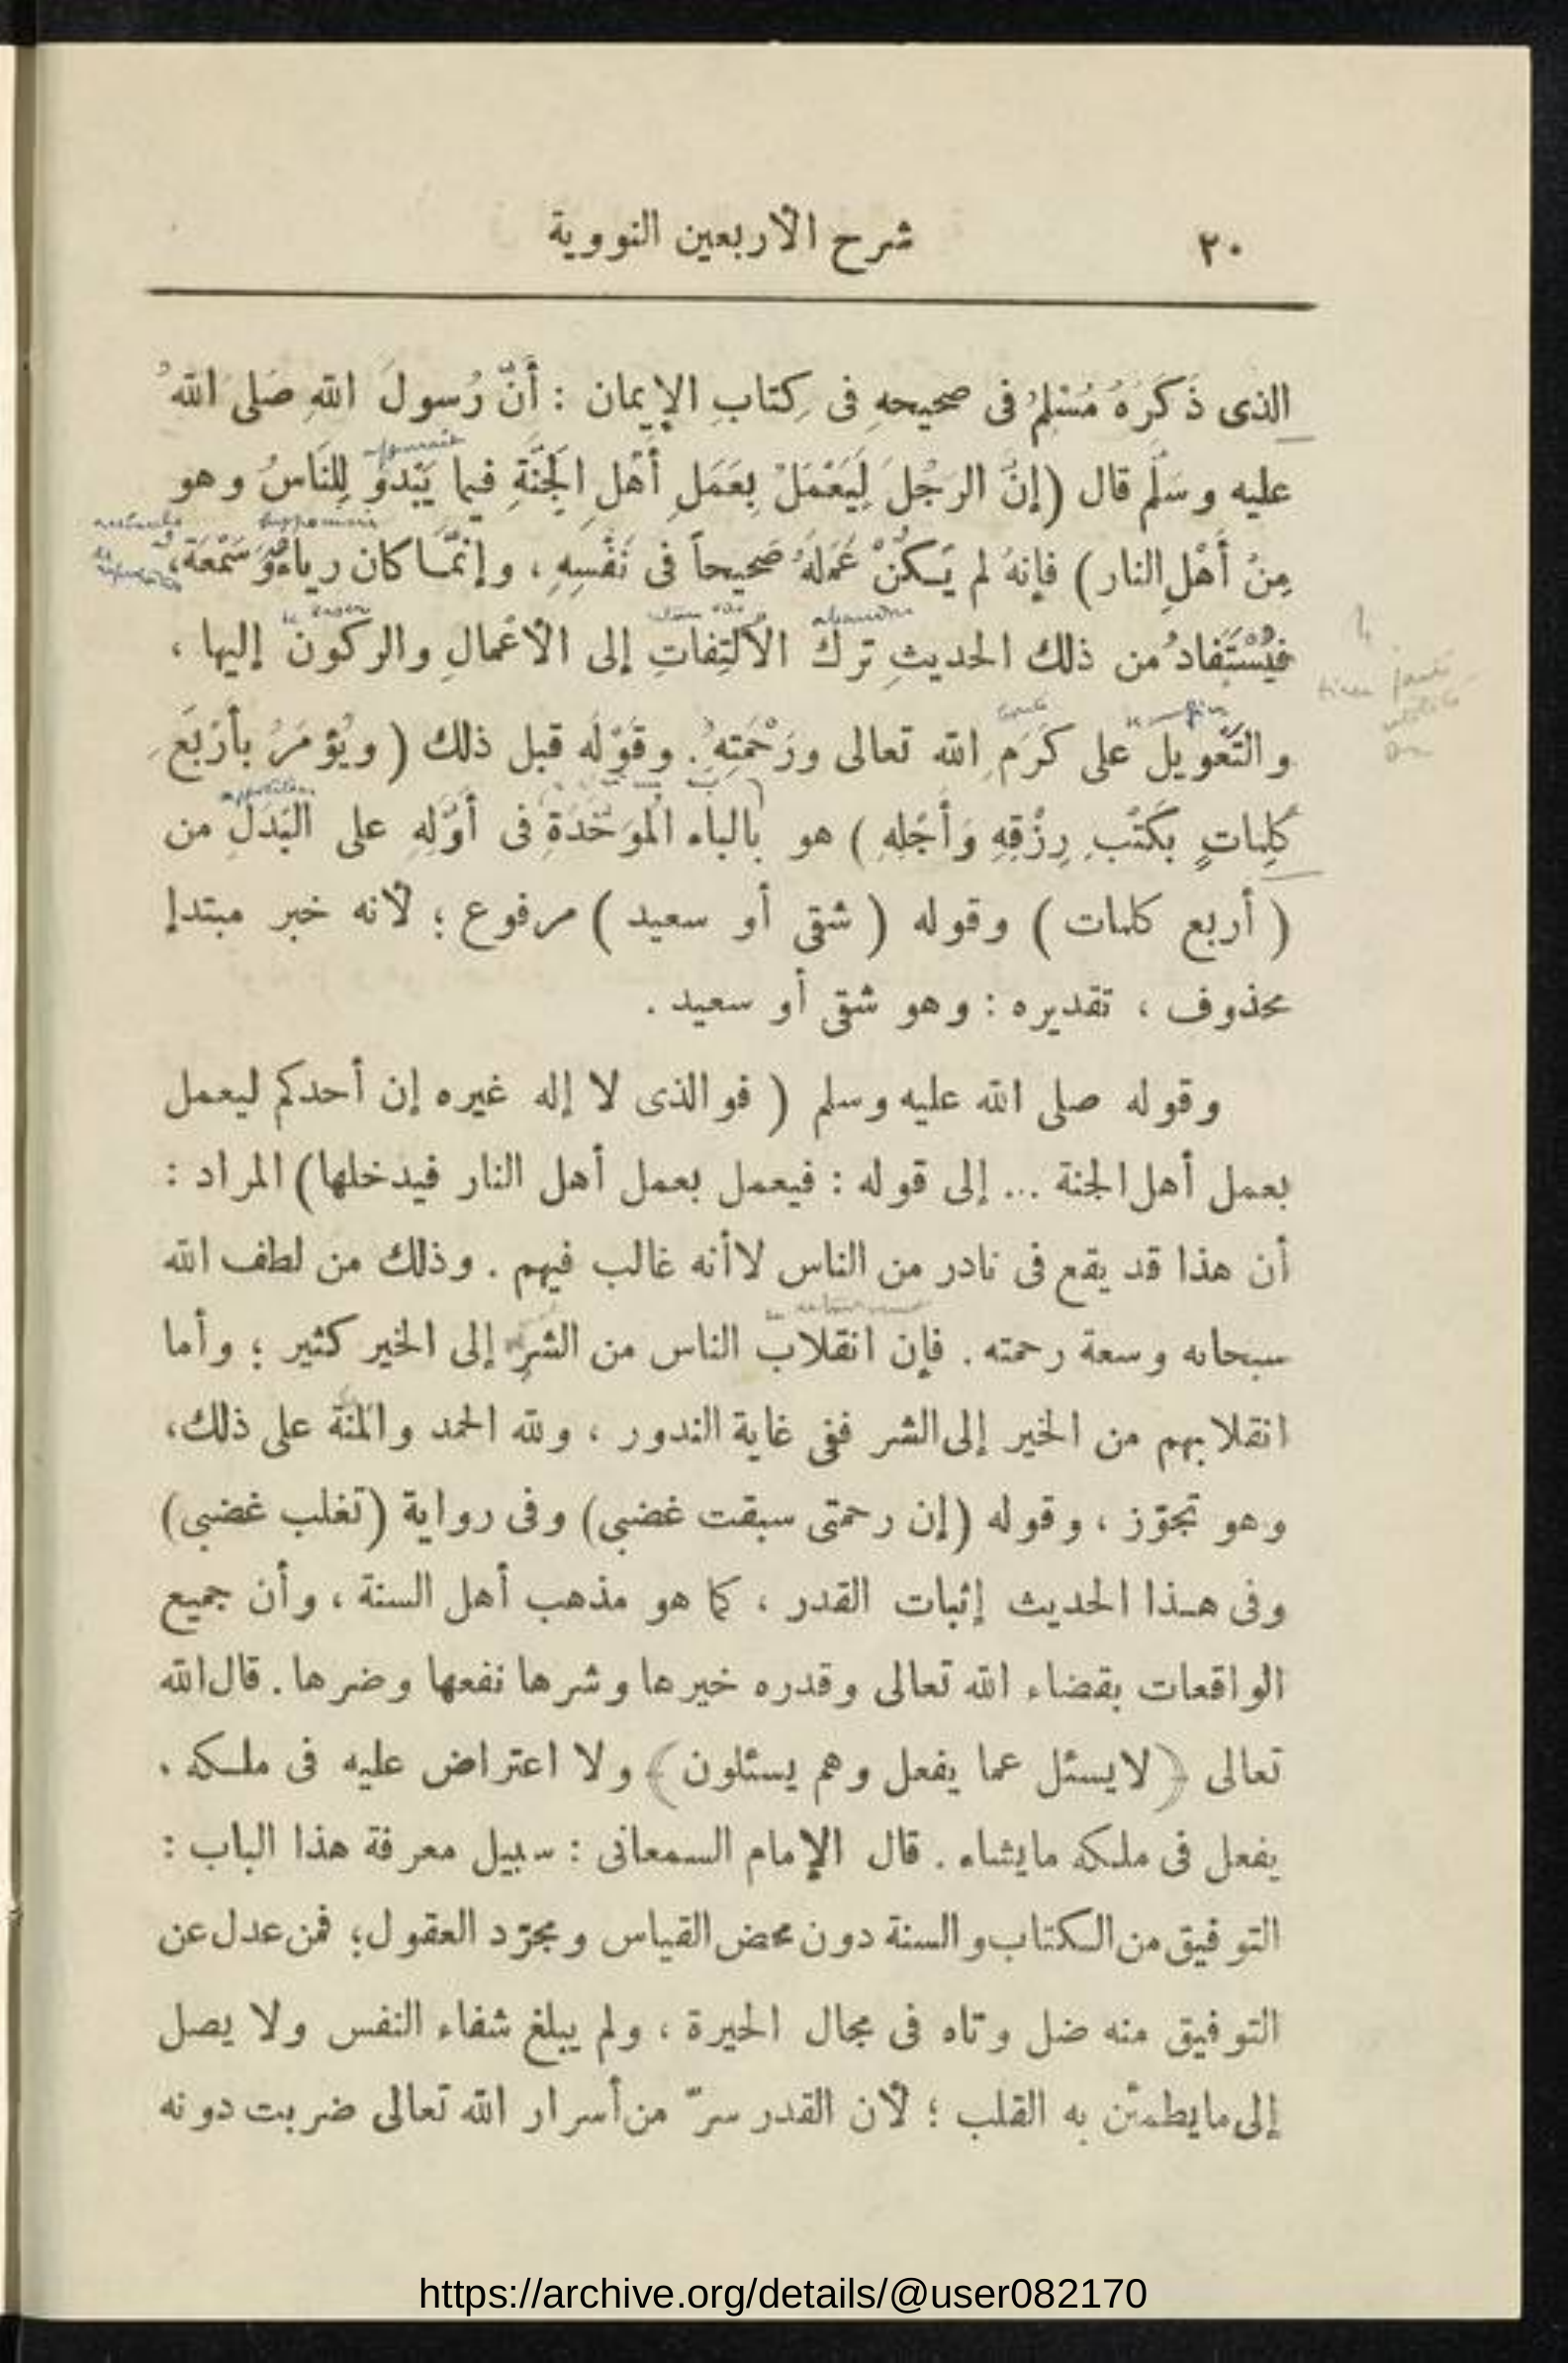 ٢٠ شرح الأربعين النووية
الذى ذكره مسلم فى صحيحه فى كتاب الإيمان : أن رسول الله صلى الله
عليه وسلم قال (إن الرجل ليعمل بعمل أهل الجنة فيما يبدو للناس وهو
من أهل النار) فإنه لم يكن عمله صحيحاً فى نفسه ، وإنما كان رياء وسمعة،
فيستفاد من ذلك الحديث ترك الالتفات إلى الأعمال والركون إليها ،
والتعويل على كرم الله تعالى ورحمته . وقوله قبل ذلك ( ويؤمر بأربع
كلمات بكتب رزقه وأجله ) هو بالباء الموحدة فى أوله على البدل من
( أربع كلمات ) وقوله ( شقى أو سعيد ) مرفوع ؛ لأنه خبر مبتدإ
محذوف ، تقديره : وهو شقى أو سعيد .
وقوله صلى الله عليه وسلم ( فوالذى لا إله غيره إن أحدكم ليعمل
بعمل أهل الجنة ... إلى قوله : فيعمل بعمل أهل النار فيدخلها) المراد :
أن هذا قد يقع فى نادر من الناس لا أنه غالب فيهم . وذلك من لطف الله
سبحانه وسعة رحمته . فإن انقلاب الناس من الشر إلى الخير كثير ؛ وأما
انقلابهم من الخير إلى الشر ففى غاية الندور ، ولله الحمد والمنة على ذلك،
وهو تجوّز ، وقوله (إن رحمتى سبقت غضبى) وفى رواية (تغلب غضبى)
وفى هـذا الحديث إثبات القدر ، كما هو مذهب أهل السنة ، وأن جميع
الواقعات بقضاء الله تعالى وقدره خيرها وشرها نفعها وضرها . قال الله
تعالى ﴿لا يسئل عما يفعل وهم يسئلون﴾ ولا اعتراض عليه فى ملـكه .
يفعل فى ملكه مايشاء . قال الإمام السمعانى : سبيل معرفة هذا الباب :
التوفيق من الـكتاب والسنة دون محض القياس ومجرّد العقول؛ فمن عدل عن
التوفيق منه ضل وتاه فى مجال الحيرة ، ولم يبلغ شفاء النفس ولا يصل
إلى مايطمئن به القلب ؛ لأن القدر سرّ من أسرار الله تعالى ضربت دونه
https://archive.org/details/@user082170